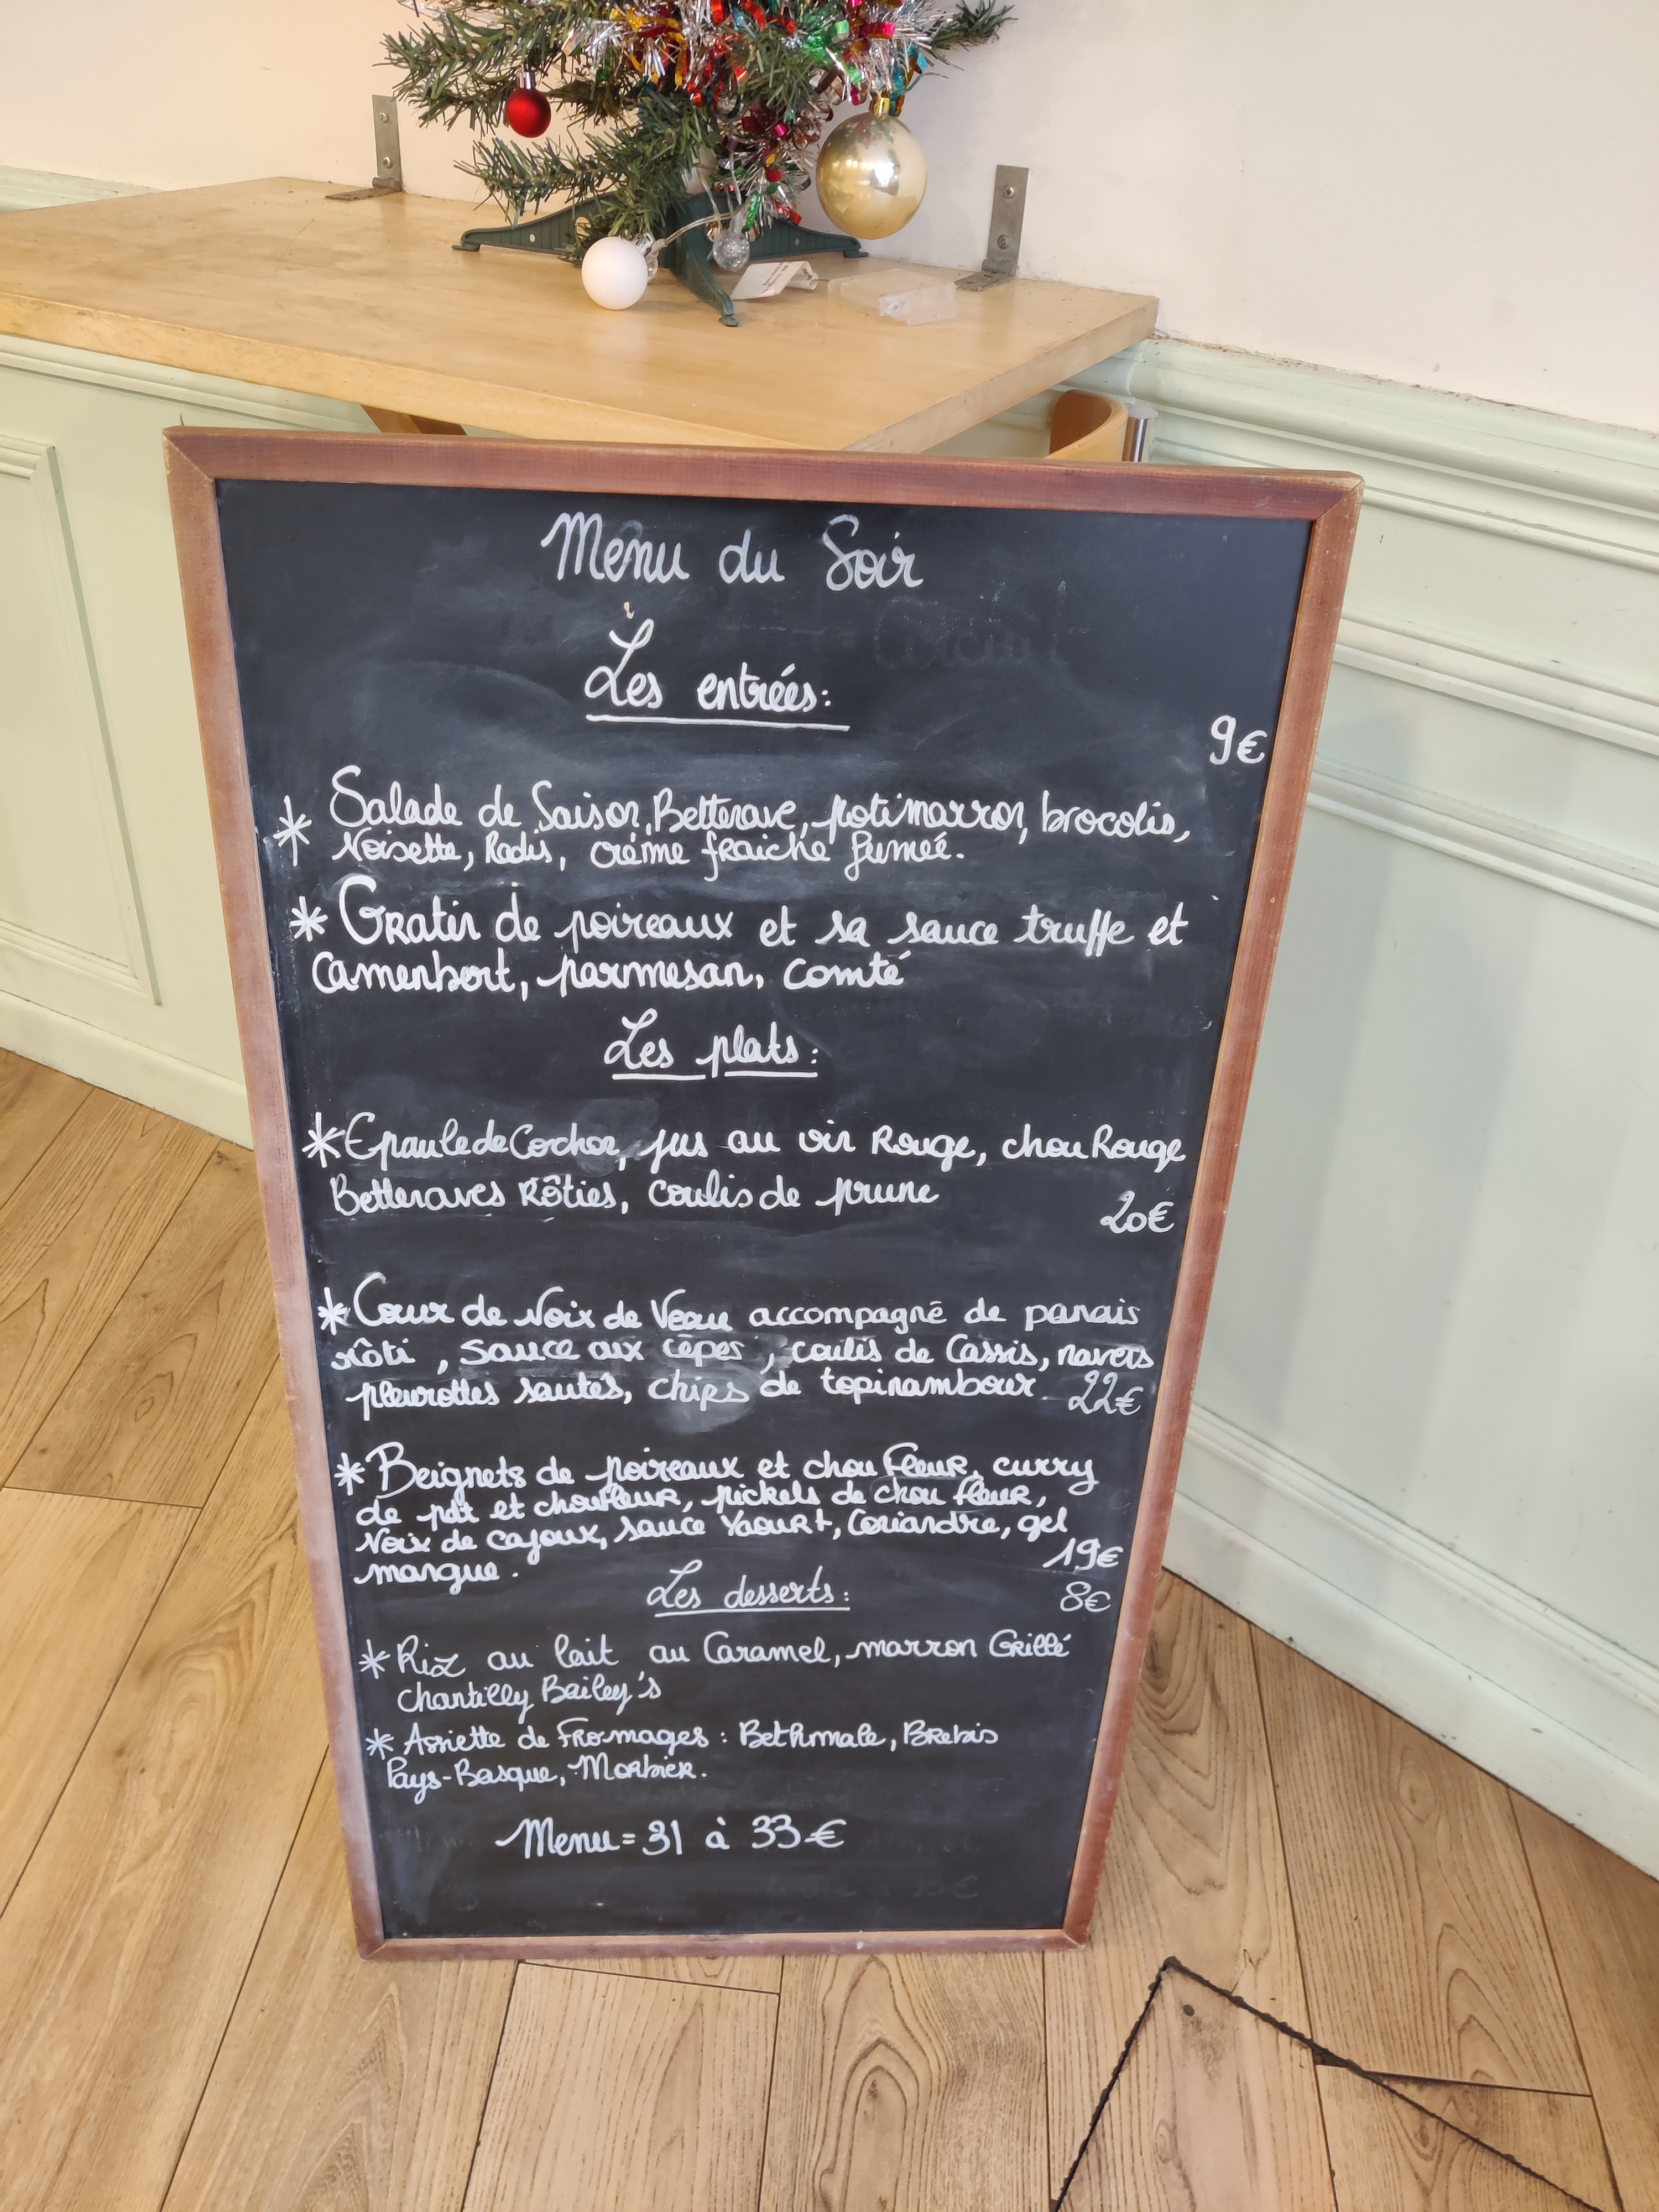 Menu du Soir
Les entrées:
9€
* Salade de Saison, Betterave, potimarron, brocolis,
Noisette, Radis, crème fraiche fumeé.
* Gratin de poireaux et sa sauce truffe et
Camenbert, parmesan, comté
Les plats:
* Epaule de Cochon, jus au vin Rouge, chou Rouge
Betteraves Rôties, coulis de prune
20€
* Cœur de Noix de Veau accompagné de panais
rôti, sauce aux cèpes, coulis de Cassis, navets
pleurottes sautés, chips de topinambour 22€
* Beignets de poireaux et chou fleur, curry
de et choufleur, pickels de chou fleur,
Noix de cajoux, sauce Yaourt, Coriandre, gel
mangue. 19€
Les desserts: 8€
* Riz au lait au Caramel, marron Grillé
Chantilly Bailey's
* Assiette de Fromages: Bethmale, Brebis
Pays-Basque, Morbier.
Menu = 31 à 33€